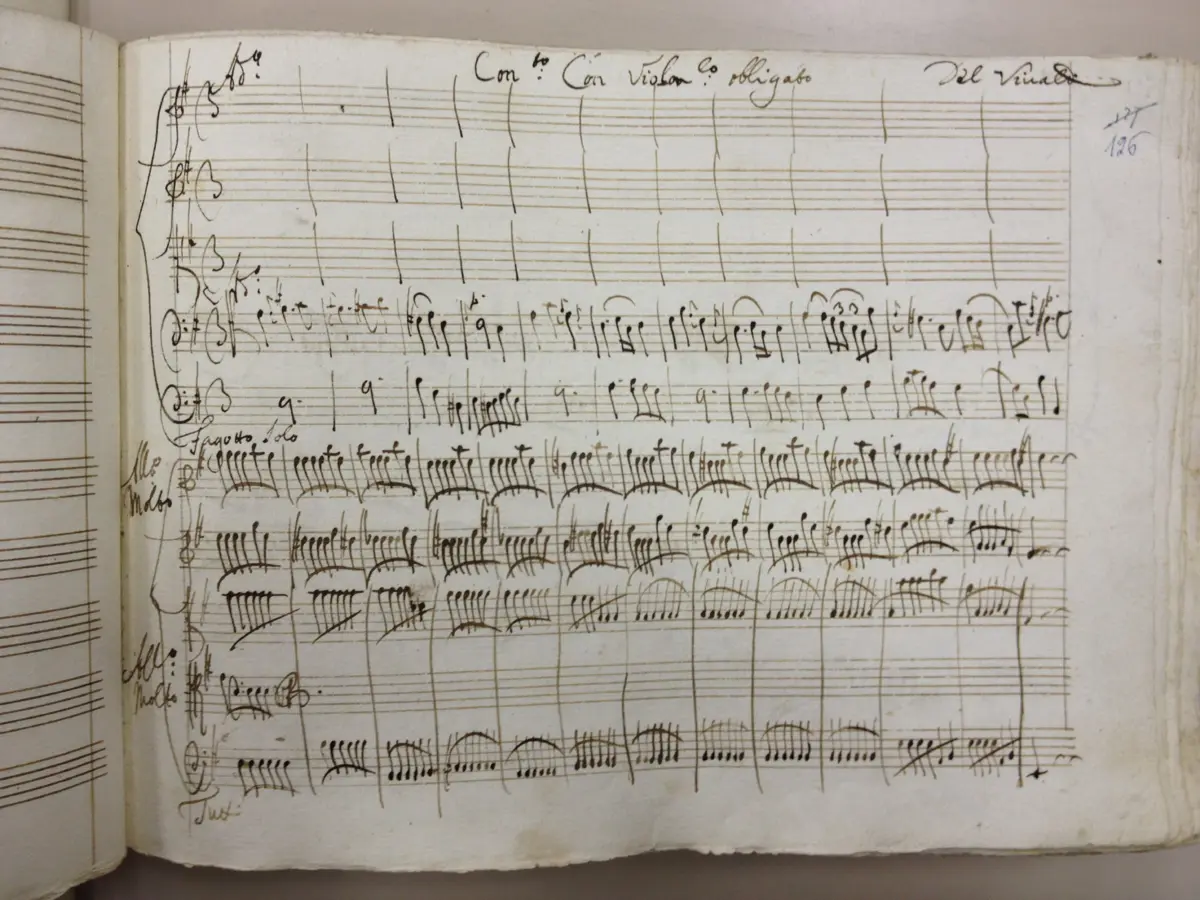 Ad.º Con.to Con Violon.lo obligato Del Vivaldi
127
126
Fagotto Solo
All.º
Molto
All.º
Molto
Tutti